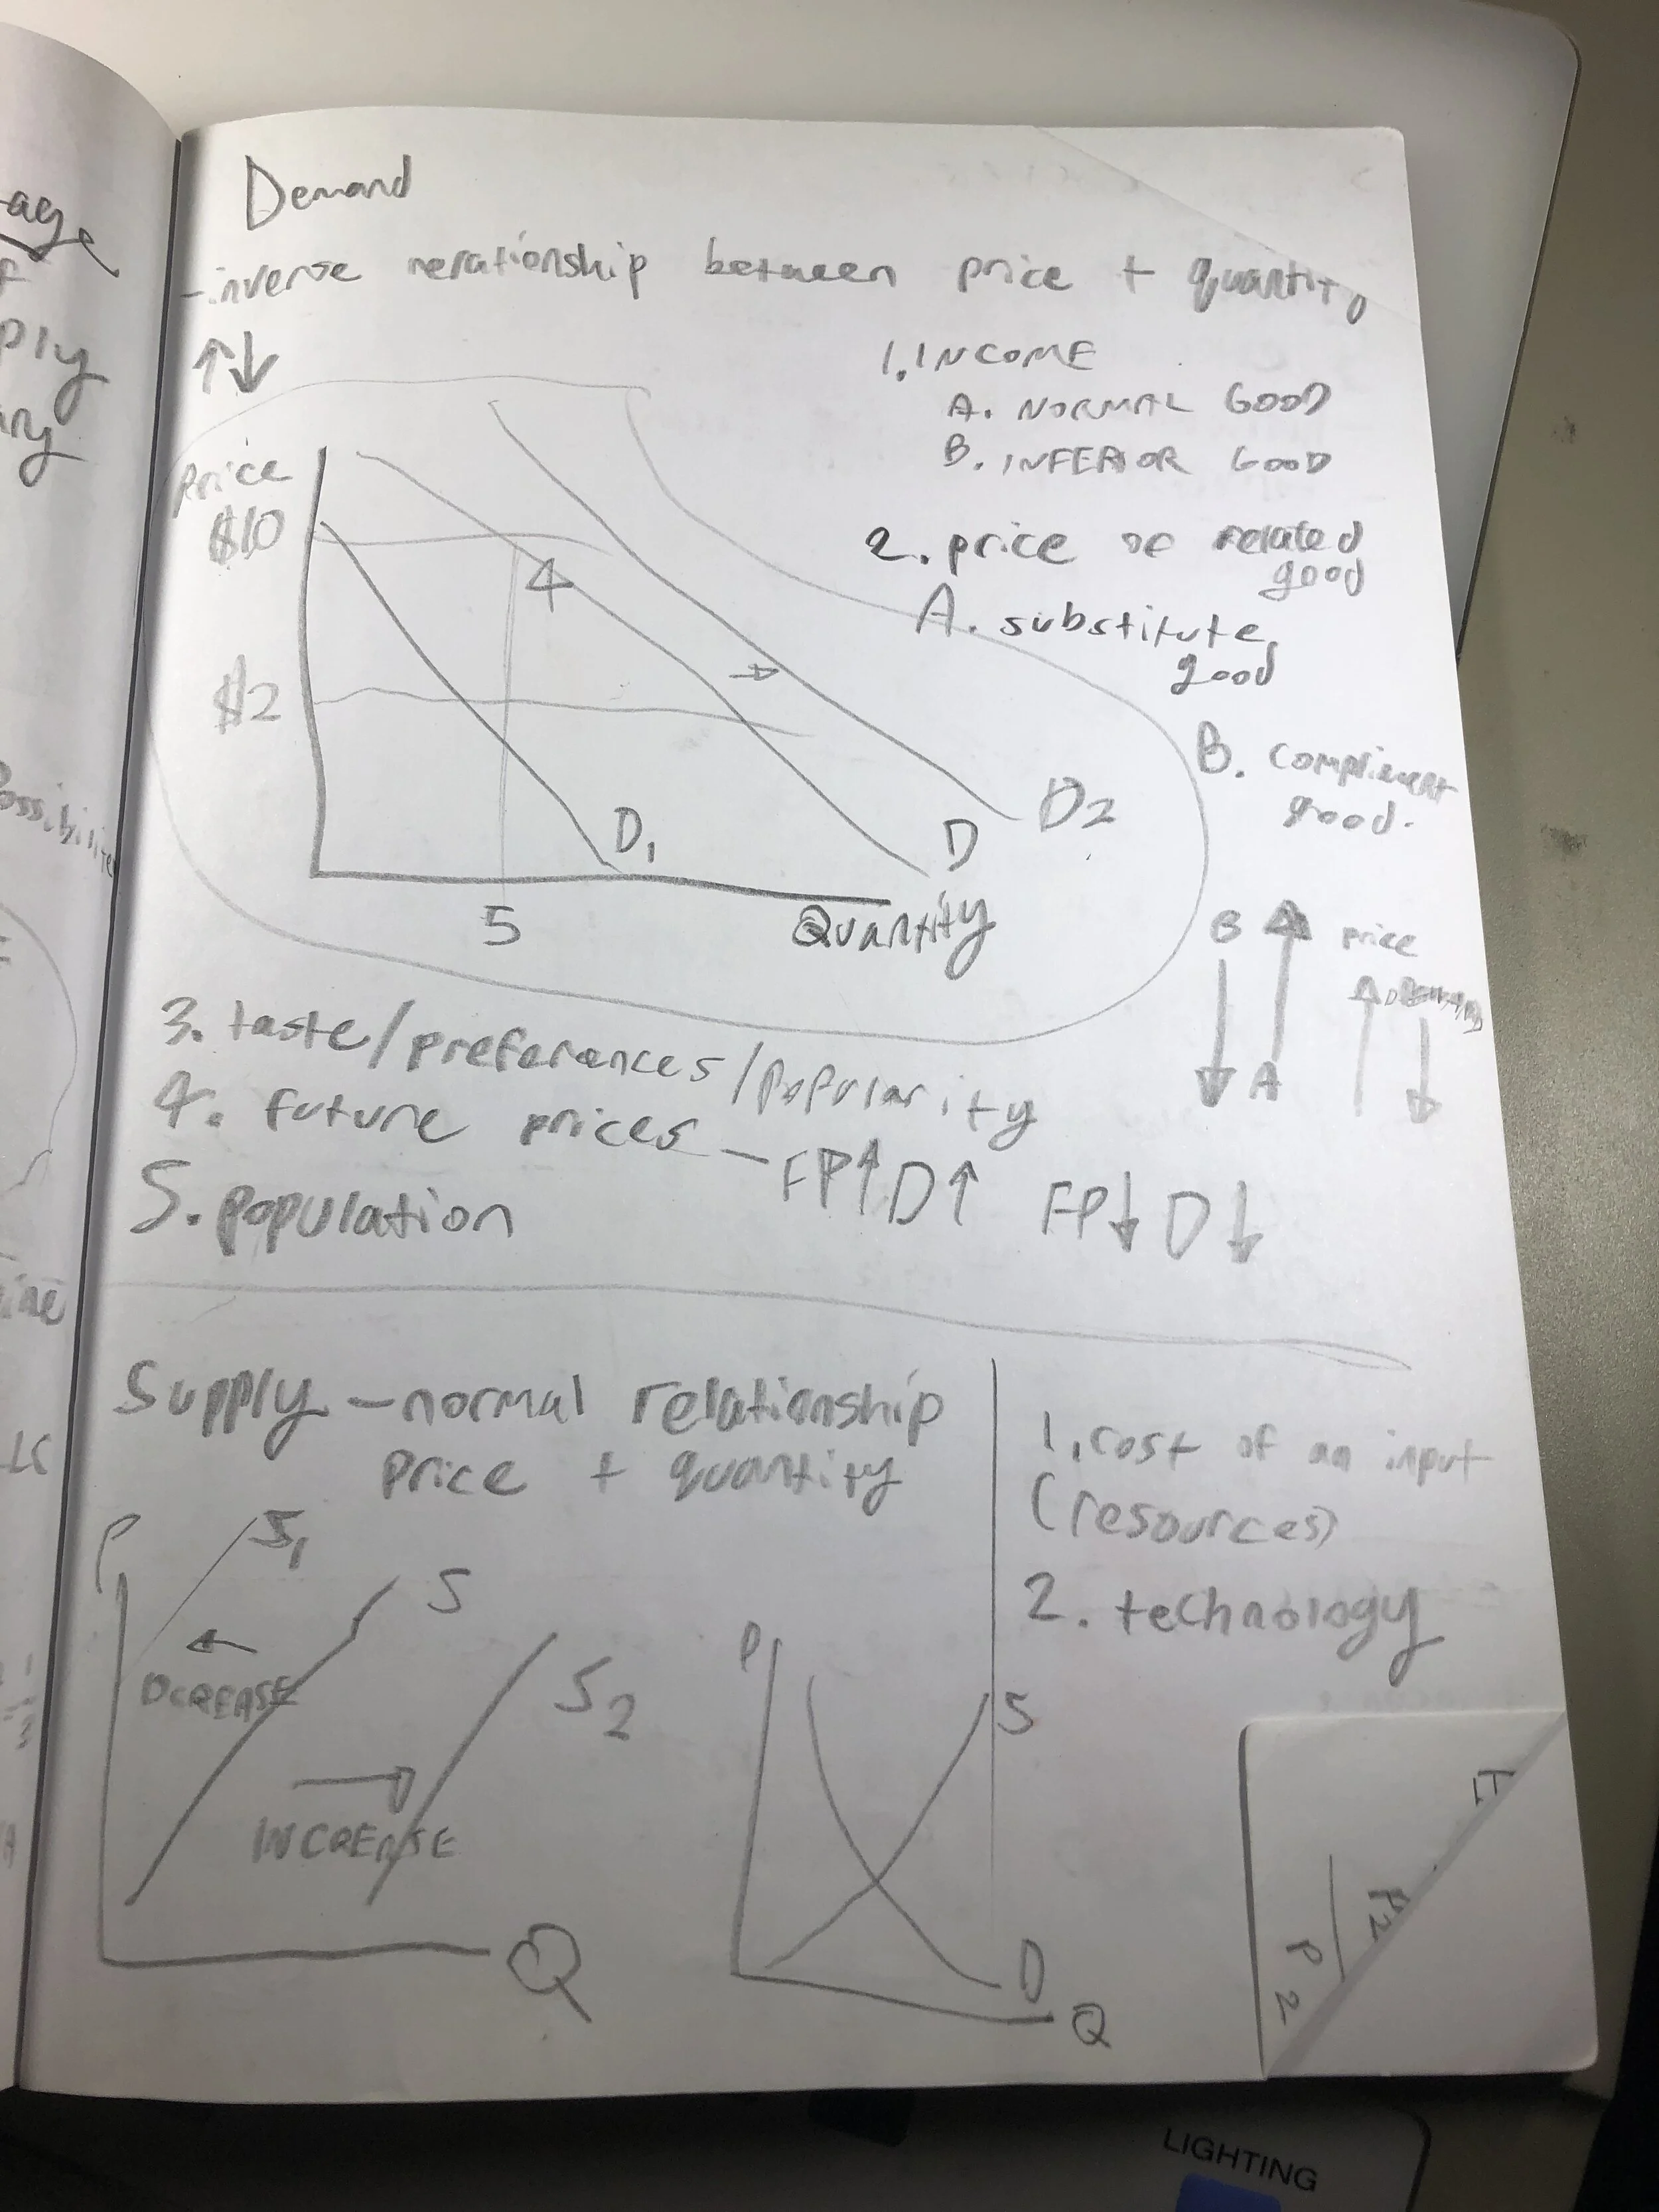 Demand
-inverse nerationship between price + quantity
↑↓
1. INCOME
A. NORMAL GOOD
B. INFERIOR GOOD
2. price of related
good
A. substitute
good
B. compliment
good.
Price
$10
4
$2
D1
D
D2
5
Quantity
B
price
A
3. taste/preferences/popularity
4. future prices - FP↑ D↑ FP↓ D↓
5. population
Supply - normal relationship
price + quantity
1. cost of an input
(resources)
2. technology
P
S1
S
←
DCREASE
S2
→
INCREASE
Q
P
S
D
Q
P
2
age
ply
LIGHTING